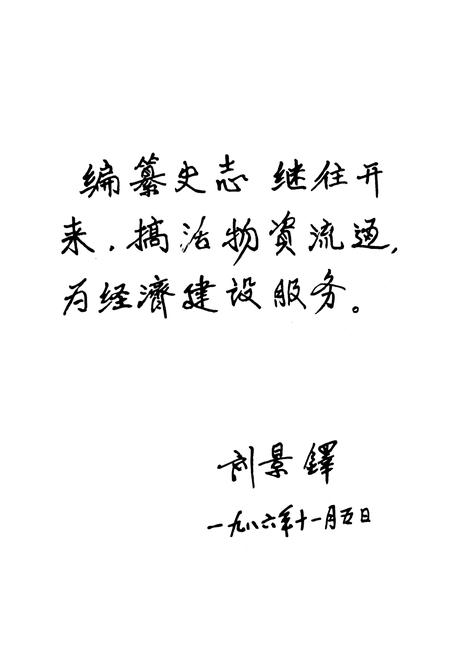 编纂史志 继往开
来，搞活物資流通，
为经濟建设服务。
刘景鐸
一九八六年十一月五日